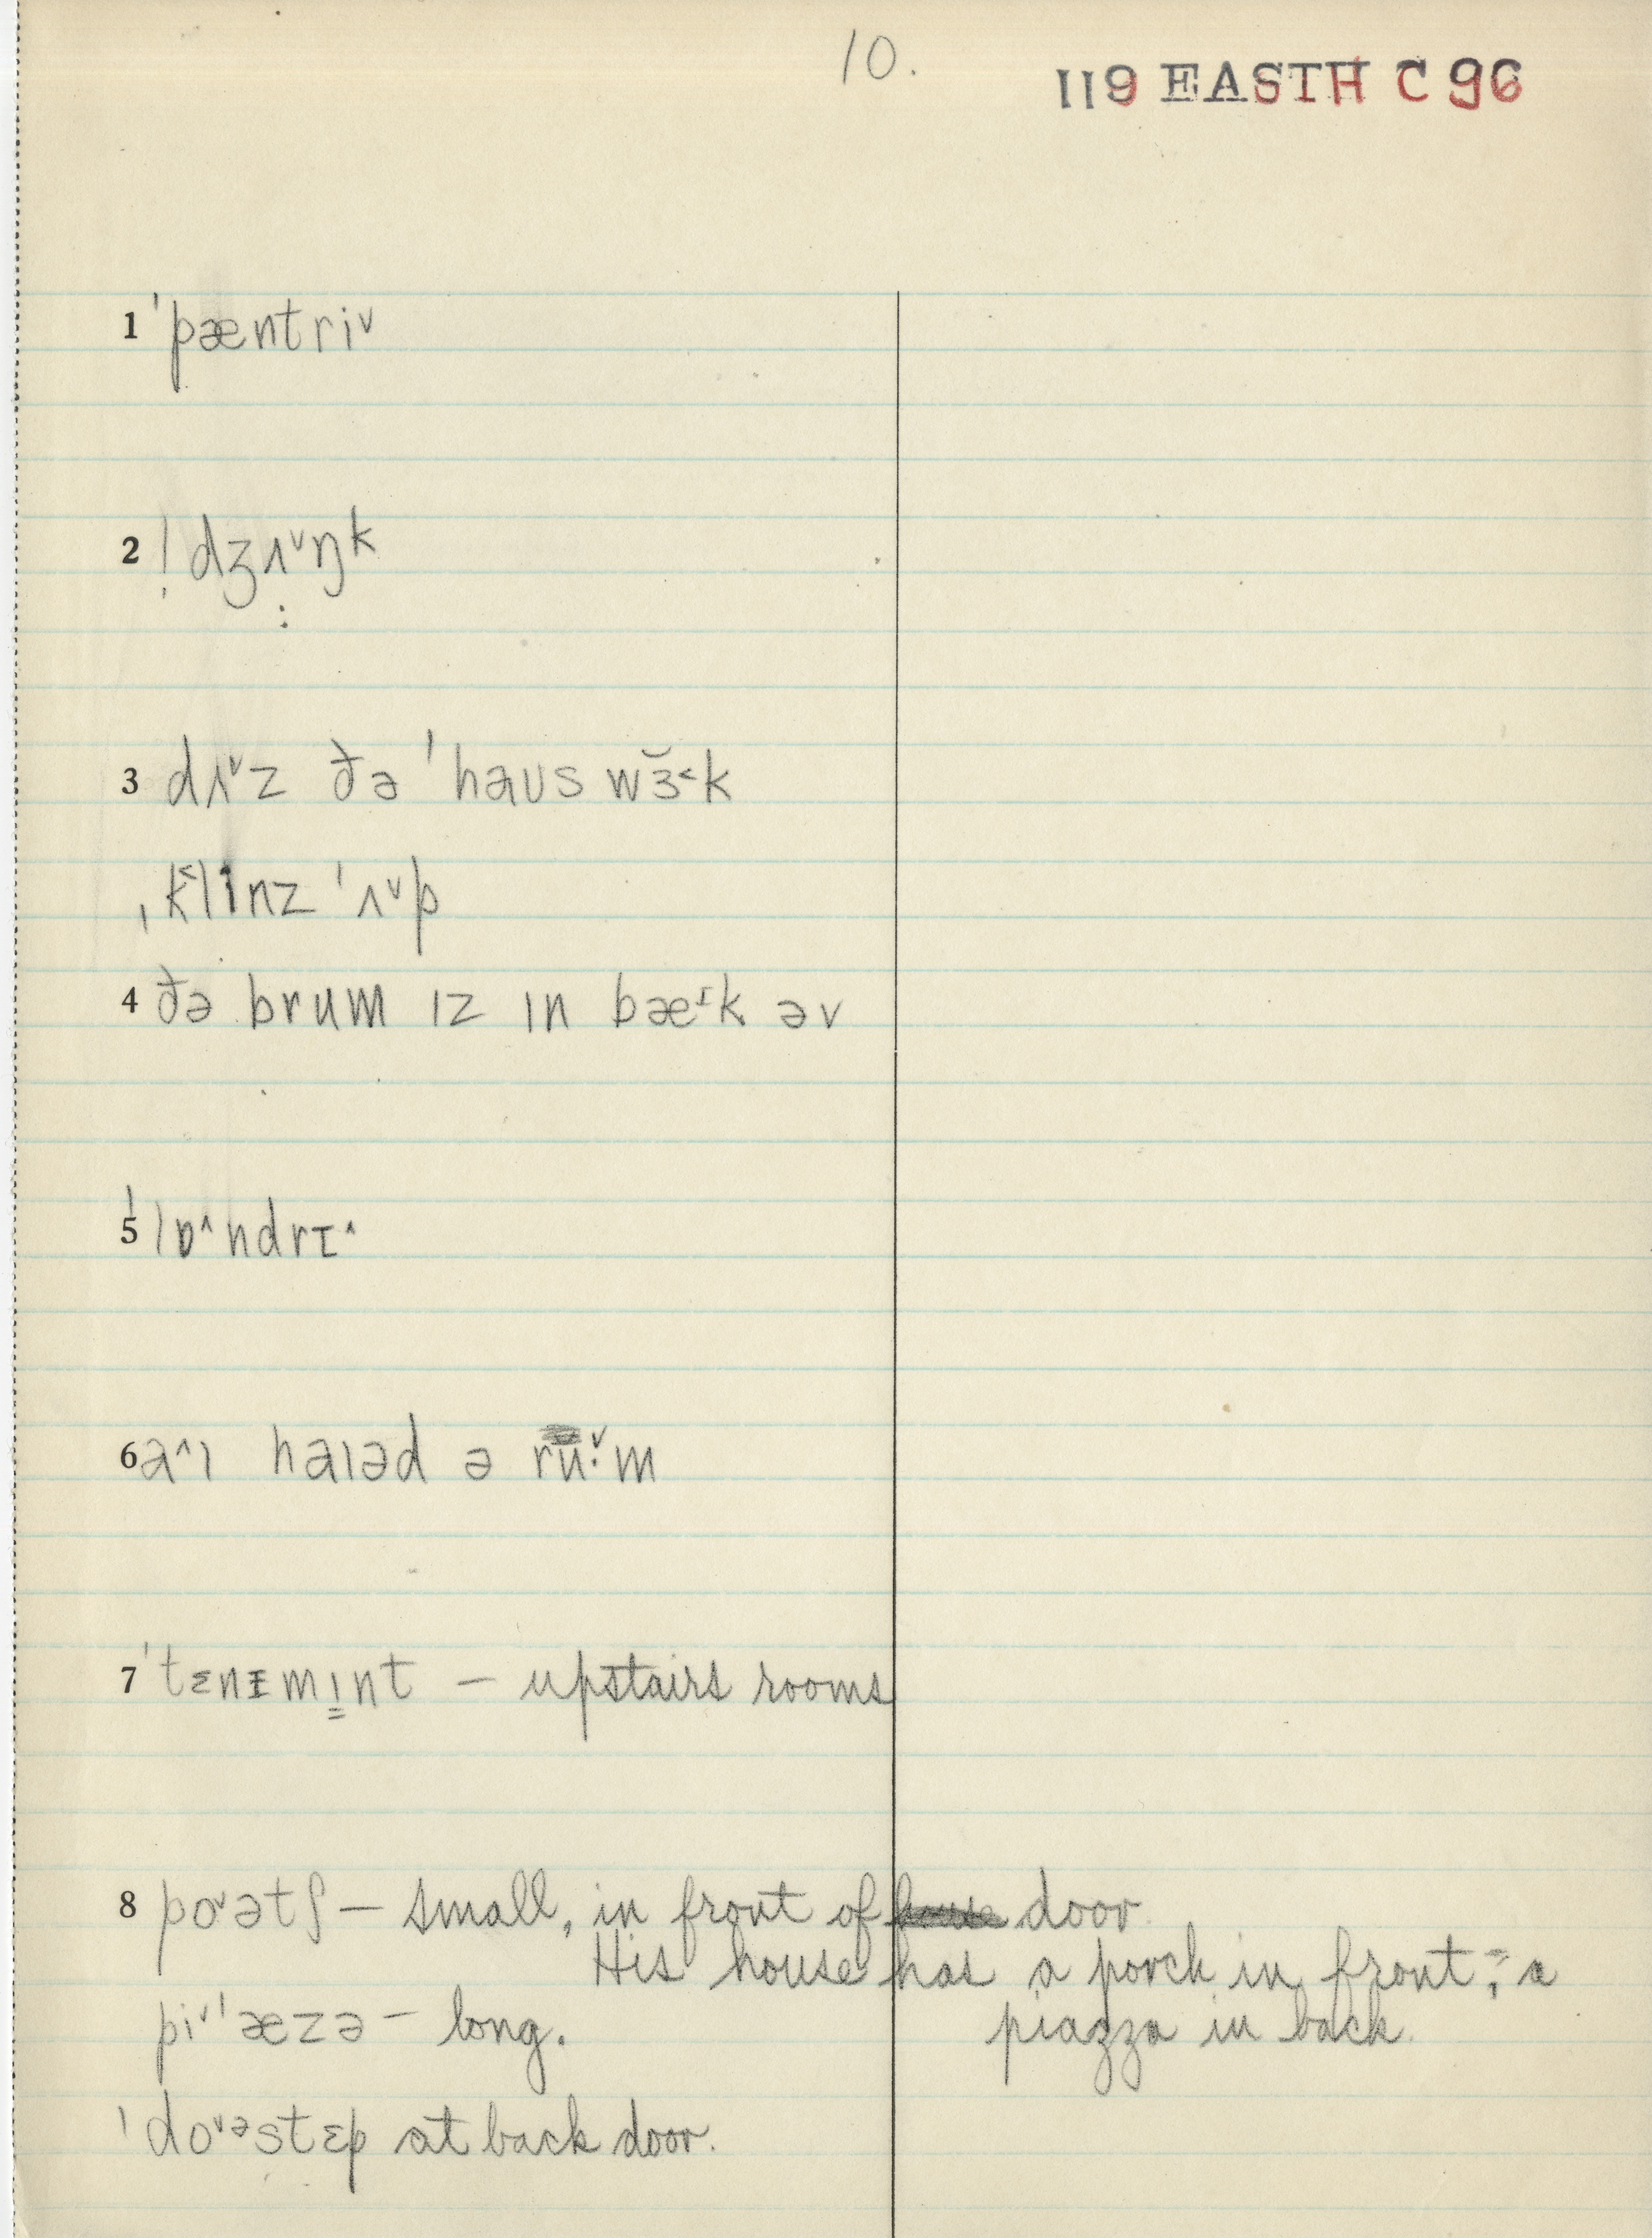 10.
119 EASTH C 96
1 ˈpæntriᵛ
2 ! dʒʌᵛŋk
3 dʌᵛz ðə ˈhaus wɜ̆˂k
ˌk˂linz ˈʌᵛp
4 ðə brum ɪz ɪn bæᶦk əv
5 ˈlɒ^ndrɪ^
6 a^ɪ haɪəd ə ruᵛ·m
7 ˈtɛnɪmɪ̳nt – upstairs rooms
8 poᵛətʃ – small, in front of door
His house has a porch in front; a
piᵛˈæzə – long. piazza in back.
ˈdoᵛᵊstɛp at back door.